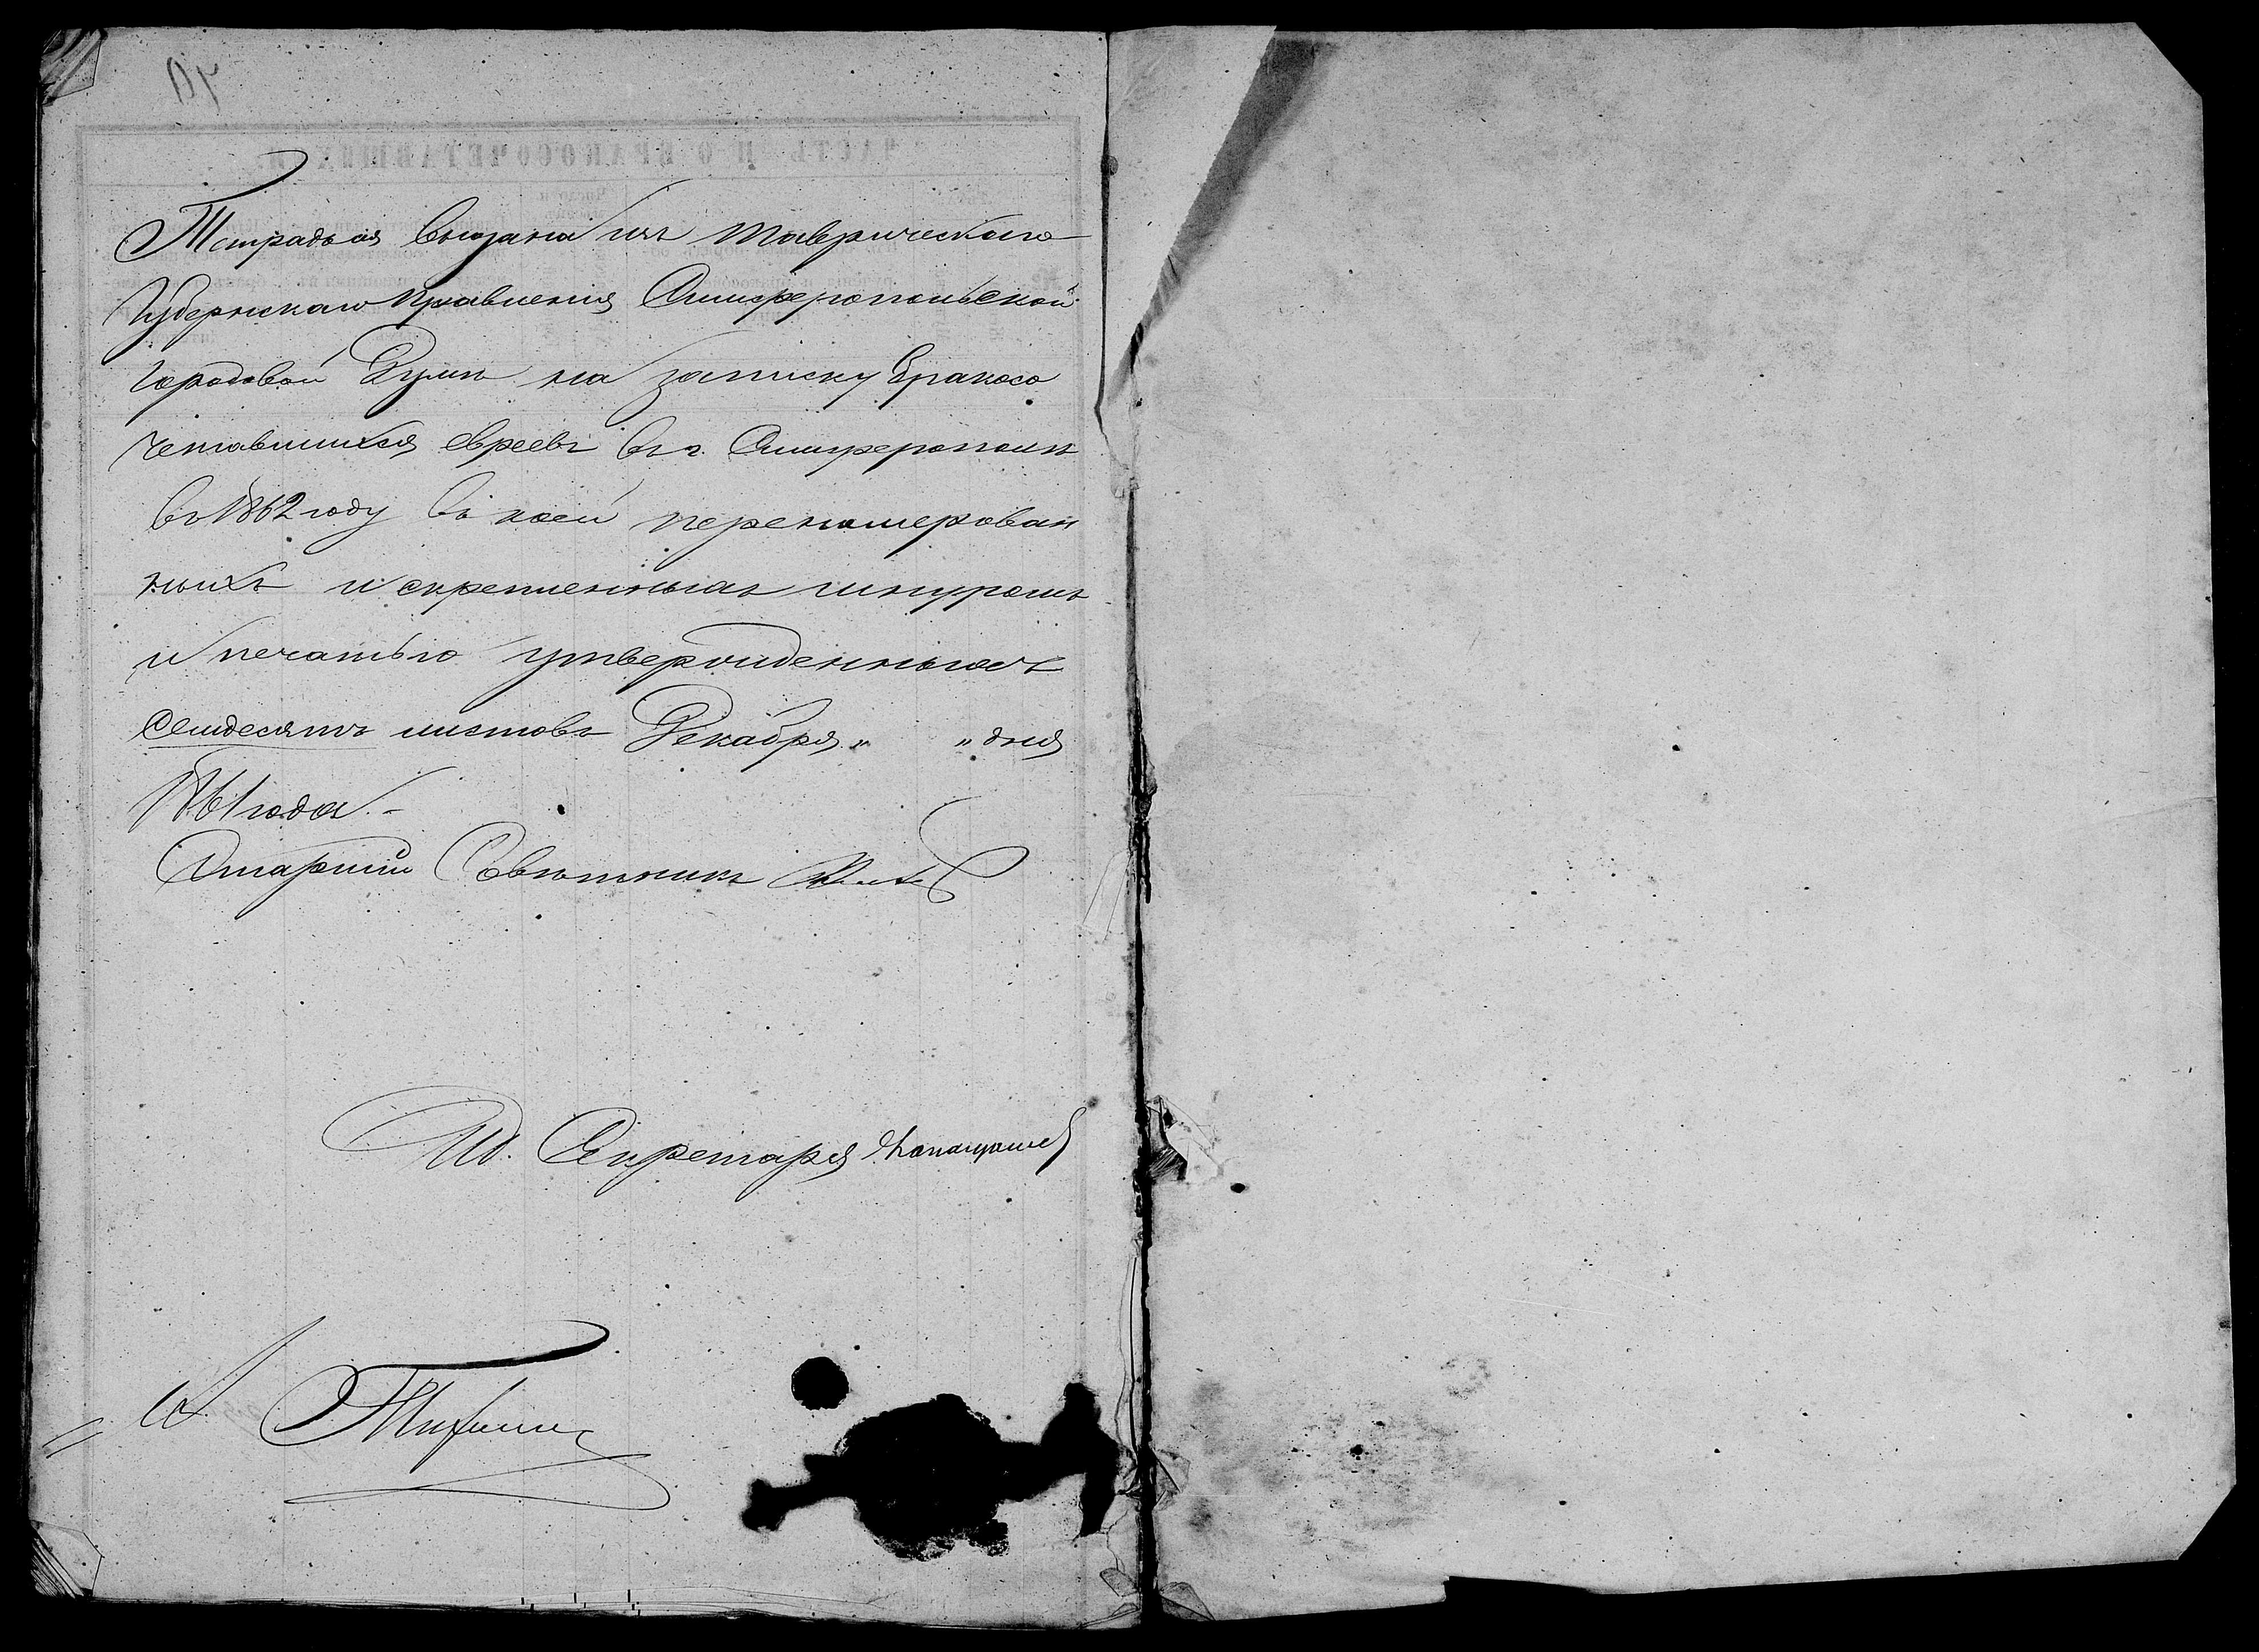 Тетрадь сія выдана изъ Таврическаго
Губернскаго Правленія Симферопольской
Городовой Думѣ на записку бракосо
четавшихся евреевъ въ г. Симферополѣ
въ 1862 году въ коей перенумерован
ныхъ и скрепленныхъ шнуромъ
и печатью утвержденныхъ
Семдесятъ листовъ Декабря „ „ дня
1861 года.-
Старшій Совѣтникъ
И.д. Секретаря